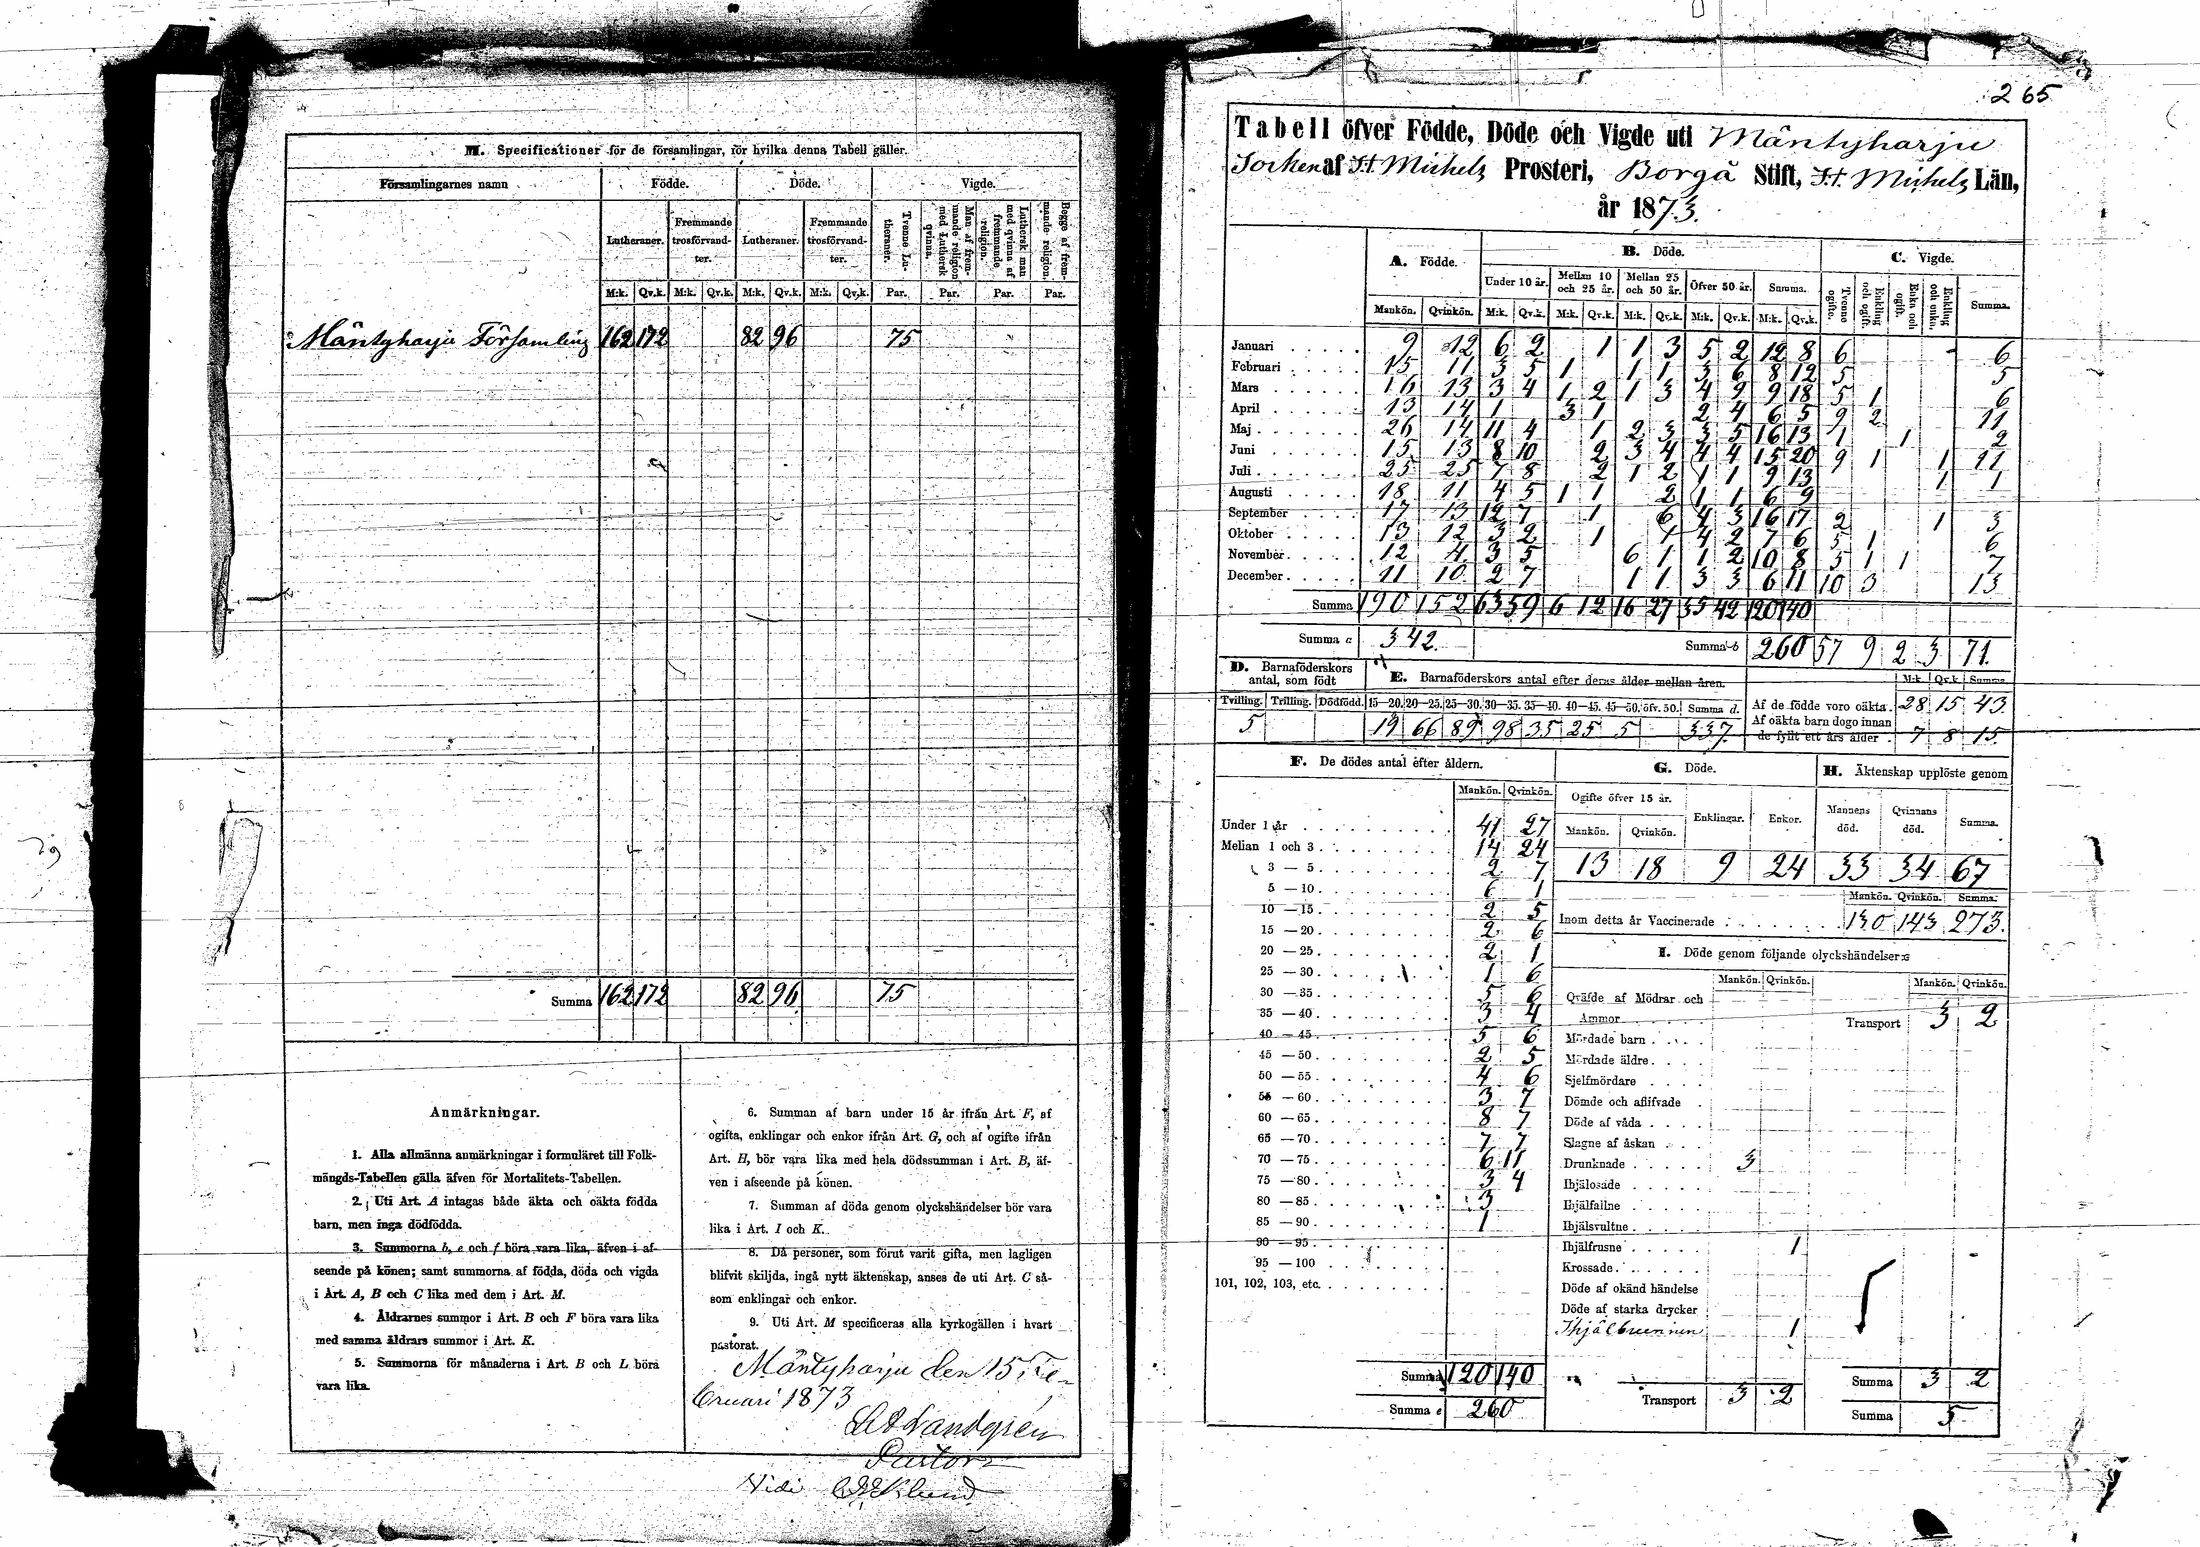 M. Specificationer för de församlingar, för hvilka denna Tabell gäller.
Församlingarnes namn Födde. Döde. Vigde.
Lutheraner. Fremmande trosförvandter. Lutheraner. Fremmande trosförvandter. Tvenne Lutheraner. Man af fremmande religion med Luthersk qvinna. Luthersk man med qvinna af fremmande religion. Begge af fremmande religion.
M:k. Qv.k. M:k. Qv.k. M:k. Qv.k. M:k. Qv.k. Par. Par. Par. Par.
Mäntyharju Församling 162 172 82 96 75
Summa 162 172 82 96 75
Anmärkningar.
1. Alla allmänna anmärkningar i formuläret till Folk-
mängds-Tabellen gälla äfven för Mortalitets-Tabellen.
2. Uti Art. A intagas både äkta och oäkta födda
barn, men inga dödfödda.
3. Summorna b, e och f böra vara lika, äfven i af-
seende på könen; samt summorna af födda, döda och vigda
i Art. A, B och C lika med dem i Art. M.
4. Åldrarnes summor i Art. B och F böra vara lika
med samma åldrars summor i Art. K.
5. Summorna för månaderna i Art. B och L böra
vara lika.
6. Summan af barn under 15 år ifrån Art. F, af
ogifta, enklingar och enkor ifrån Art. G, och af ogifte ifrån
Art. H, bör vara lika med hela dödssumman i Art. B, äf-
ven i afseende på könen.
7. Summan af döda genom olyckshändelser bör vara
lika i Art. I och K.
8. Då personer, som förut varit gifta, men lagligen
blifvit skiljda, ingå nytt äktenskap, anses de uti Art. C så-
som enklingar och enkor.
9. Uti Art. M specificeras alla kyrkogällen i hvart
pastorat.
Mäntyharju den 15 Fe-
bruari 1873
Landgrén
Pastor
Vidi
265
Tabell öfver Födde, Döde och Vigde uti Mäntyharju
Socken af St. Michels Prosteri, Borgå Stift, St. Michels Län,
år 1873.
A. Födde. B. Döde. C. Vigde.
Under 10 år. Mellan 10 och 25 år. Mellan 25 och 50 år. Öfver 50 år. Summa. Tvenne ogifte. Enkling och ogift. Enka och ogift. Enkling och enka. Summa.
Mankön. Qvinkön. M:k. Qv.k. M:k. Qv.k. M:k. Qv.k. M:k. Qv.k. M:k. Qv.k.
Januari 9 12 6 2 1 1 3 5 2 12 8 6 6
Februari 15 11 3 5 1 1 1 3 6 8 12 5 5
Mars 16 13 3 4 1 2 1 3 4 9 9 18 5 1 6
April 13 14 1 3 1 2 4 6 5 9 2 11
Maj 26 14 11 4 1 2 3 3 5 16 13 1 1 2
Juni 15 13 8 10 2 3 4 4 4 15 20 9 1 1 11
Juli 25 25 7 8 2 1 2 1 1 9 13 1 1
Augusti 18 11 4 5 1 1 2 1 1 6 9
September 17 13 12 7 1 6 4 3 16 17 2 1 3
Oktober 13 12 3 2 1 1 4 2 7 6 5 1 6
November 12 4 3 5 6 1 1 2 10 8 5 1 1 7
December 11 10 2 7 1 1 3 3 6 11 10 3 13
Summa 190 152 63 59 6 12 16 27 35 42 120 140
Summa a 342. Summa b 260 57 9 2 3 71.
D. Barnaföderskors antal, som födt
E. Barnaföderskors antal efter deras ålder mellan åren.
M:k. Qv.k. Summa
Tvilling. Trilling. Dödfödd. 15—20. 20—25. 25—30. 30—35. 35—40. 40—45. 45—50. öfv. 50. Summa d.
5 19 66 89 98 35 25 5 337
Af de födde voro oäkta 28 15 43.
Af oäkta barn dogo innan
de fyllt ett års ålder 7 8 15.
F. De dödes antal efter åldern.
Mankön. Qvinkön.
Under 1 år 41 27
Mellan 1 och 3 14 24
3 — 5 2 7
5 — 10 6 1
10 — 15 2 5
15 — 20 2 6
20 — 25 2 1
25 — 30 1 6
30 — 35 5 6
35 — 40 3 4
40 — 45 5 6
45 — 50 2 5
50 — 55 4 6
55 — 60 3 7
60 — 65 8 7
65 — 70 7 7
70 — 75 6 11
75 — 80 3 4
80 — 85 3
85 — 90 1
90 — 95
95 — 100
101, 102, 103, etc.
Summa 120 140
Summa e 260
G. Döde.
Ogifte öfver 15 år. Enklingar. Enkor.
Mankön. Qvinkön.
13 18 9 24
H. Äktenskap upplöste genom
Mannens död. Qvinnans död. Summa.
33 34 67
Mankön. Qvinkön. Summa.
Inom detta år Vaccinerade 130 143 273.
I. Döde genom följande olyckshändelser:
Mankön. Qvinkön. Mankön. Qvinkön.
Qväfde af Mödrar och
Ammor
Transport 3 2
Mördade barn
Mördade äldre
Sjelfmördare
Dömde och aflifvade
Döde af våda
Slagne af åskan
Drunknade 3
Ihjälosade
Ihjälfallne
Ihjälsvultne
Ihjälfrusne 1
Krossade
Döde af okänd händelse
Döde af starka drycker
Ihjälbrunnen 1
Transport 3 2
Summa 3 2
Summa 5